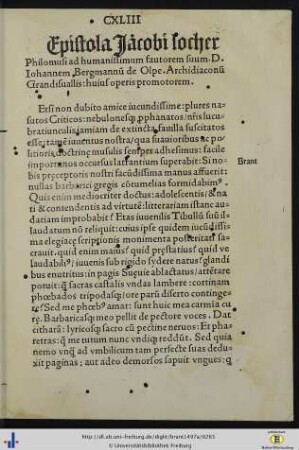 CXLIII
Epistola Jacobi locher
Philomusi ad humanissimum fautorem suum. D.
Iohannem Bergmannū de Olpe. Archidiaconū
Grandisuallis: huius operis promotorem.
Etsi non dubito amice iucundissime: plures na-
sutos Criticos: nebulonesq; phanatos/
ubratiunculis iamiam de extincta fauilla suscitatos
esse: tamē iuuentus nostra/
politioris doctrine musulis semper adhesimus: facile
importunos occursus latrantium superabit: Si no-
bis preceptoris nostri facūdissima manus affuerit:
Brant
nullas barbarici gregis cōtumelias formidabimꝰ.
Quis enim mediocriter doctus: adolescentes/ & na
ti & contendentis ad virtutē: litterariam istanc au-
datiam improbabit? Etas iuuenilis Tibullū suū il-
laudatum nō reliquit: cuius ipse quidem iucūdissi-
ma elegiace scriptionis monimenta posteritati sa-
crauit. quid enim maius/ quid prestatius/ quid ve
laudabilꝰ/ iuuenis sub rigido sydere natus/ glandi
bus enutritus: in pagis Sueuie ablactatus/ attētare
potuit: q̄ sacras castalis vndas lambere: cortinam
phœbados tripodasq; ore parū diserto continge-
re: Sed me phœbꝰ amat: sunt huic mea carmia cu
rę. Barbaricasq; meo pellit de pectore voces. Dat
citharā: lyricosq; sacro cū pectine neruos: Et pha
retras: q̄ me tutum nunc vndiq; reddūt. Sed quia
nemo vnq̄ ad vmbilicum tam perfecte suas dedu-
xit paginas: aut adeo demorsos sapuit vngues: q
http://dl.ub.uni-freiburg.de/diglit/brant1497a/0285
© Universitätsbibliothek Freiburg